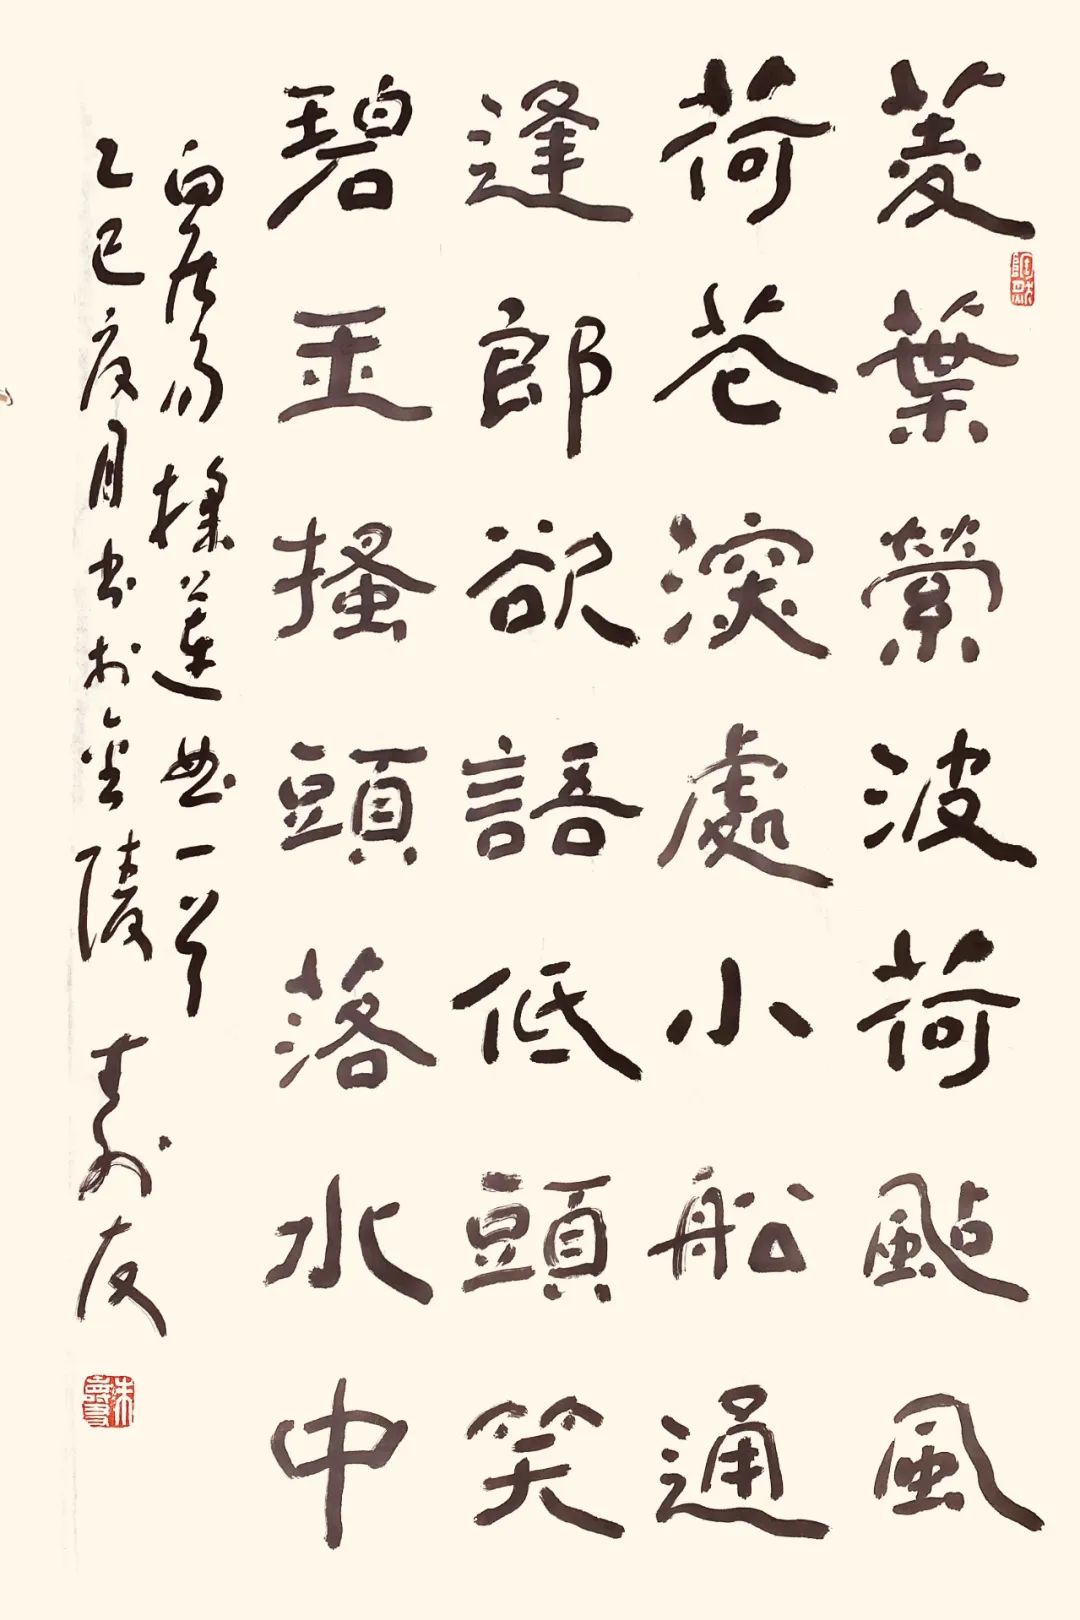 菱葉縈波荷颭風
荷花深處小船通
逢郎欲語低頭笑
碧玉搔頭落水中
白居易採蓮曲一首
乙巳夏月書於金陵 壽友
朱壽友